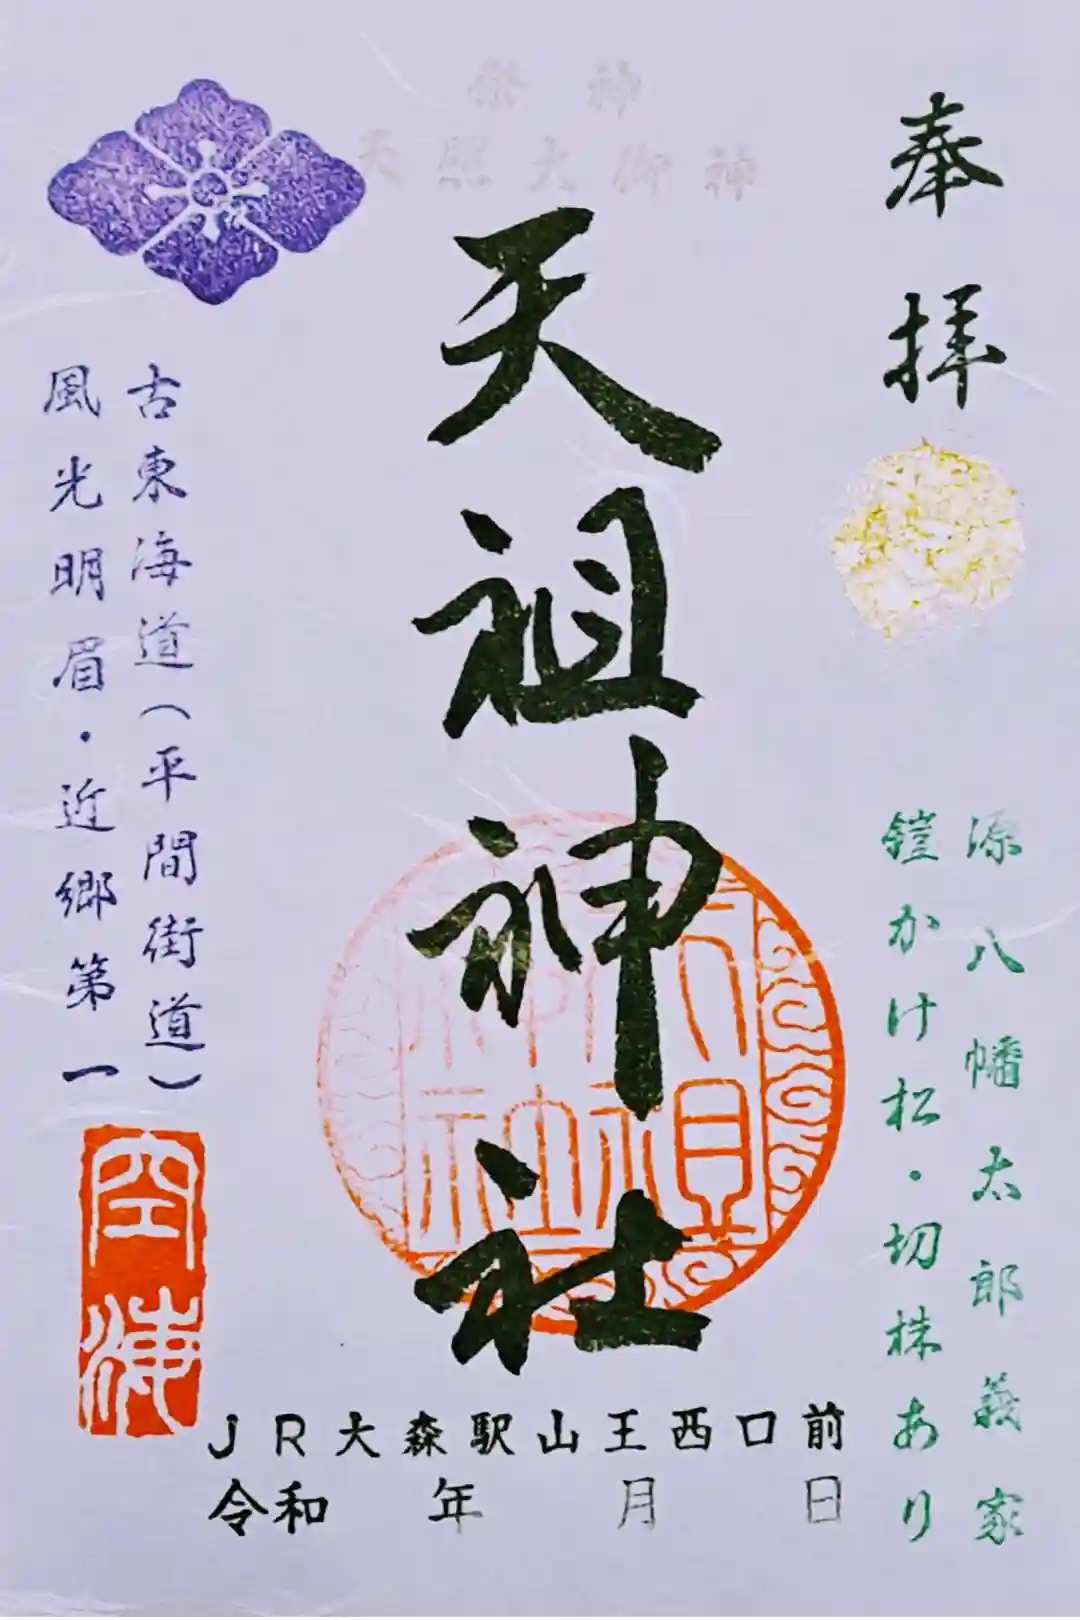 奉拝
源八幡太郎義家
鎧かけ松・切株あり
祭神
天照大御神
天祖神社
天祖神社
古東海道(平間街道)
風光明眉・近郷第一
空海
JR大森駅山王西口前
令和 年 月 日